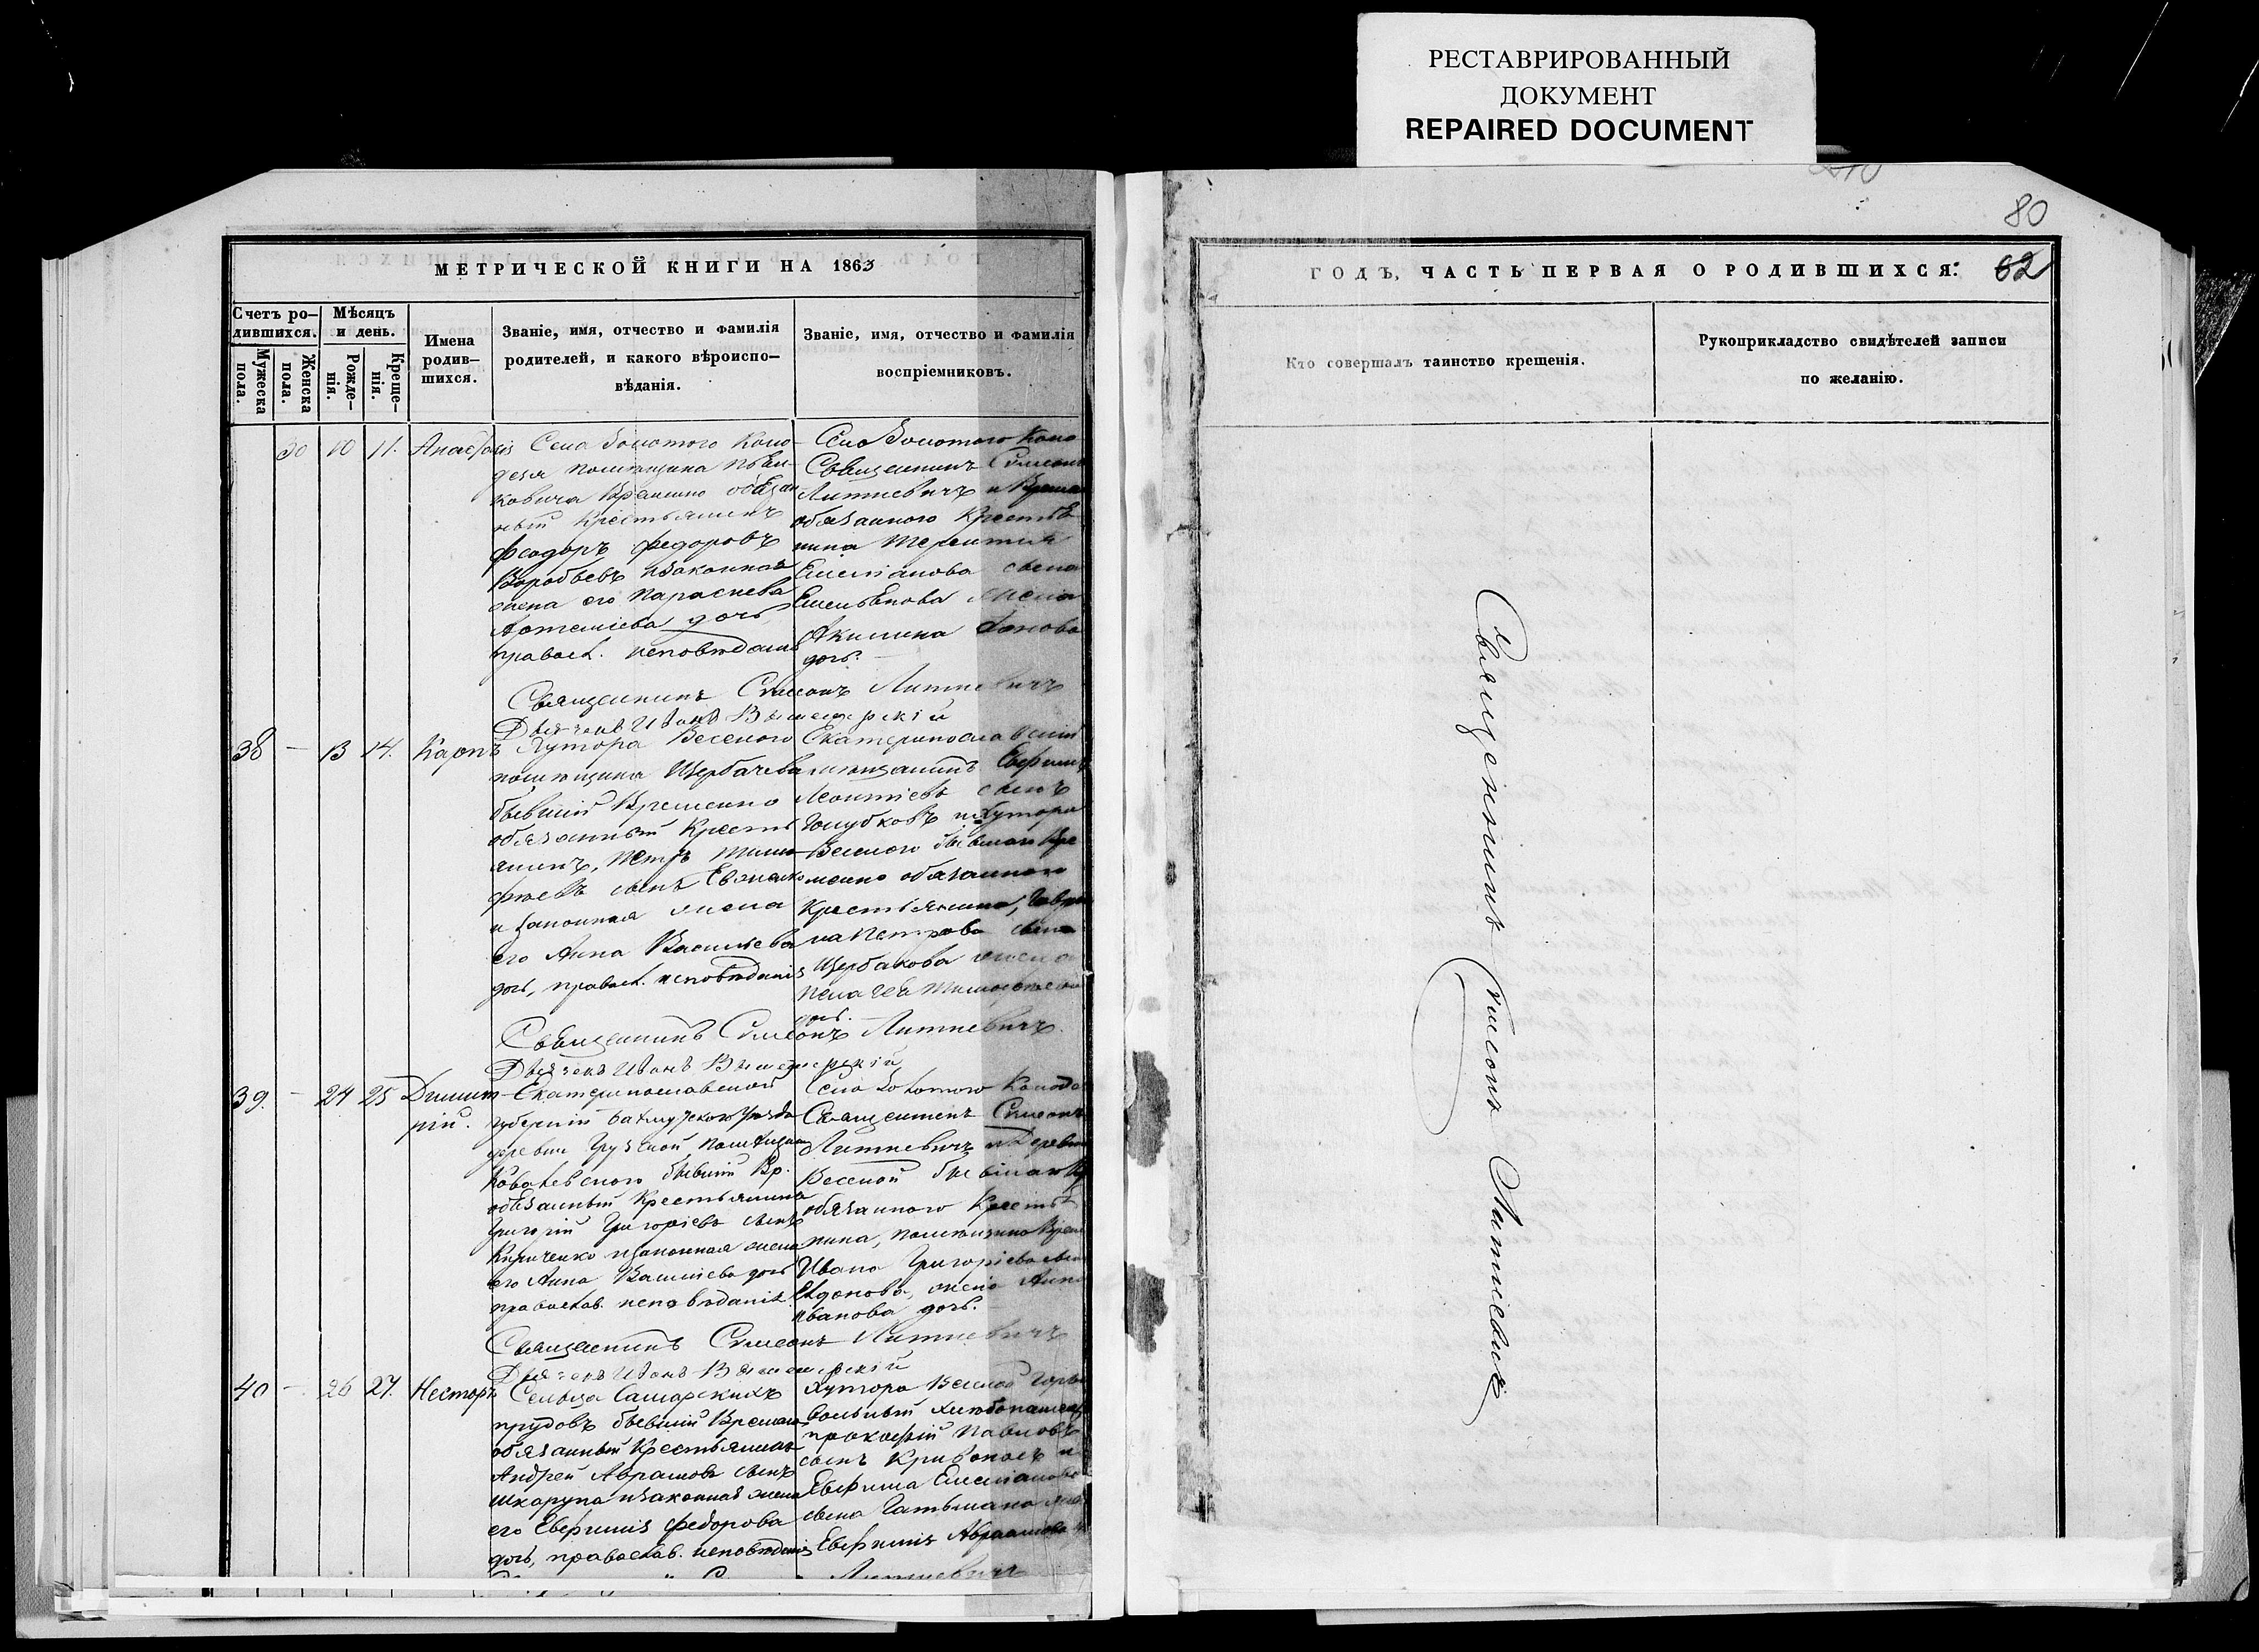 РЕСТАВРИРОВАННЫЙ
ДОКУМЕНТ
REPAIRED DOCUMENT
80
МЕТРИЧЕСКОЙ КНИГИ НА 1863
Счетъ ро-
дившихся.
Мужеска
пола.
Женска
пола.
Мѣсяцъ
и день.
Рожде-
нія.
Креще-
нія.
Имена
родив-
шихся.
Званіе, имя, отчество и фамилія
родителей, и какого вѣроиспо-
вѣданія.
Званіе, имя, отчество и фамилія
воспріемниковъ.
30 10 11. Анастасія
Села Золотого Коло-
дезя помѣщика
ковича Временно обязан
ный Крестьянинъ
Феодоръ Федоровъ
Воробьевъ изаконная
жена его Параскева
Артеміева дочь
правосл. исповѣданія
Села Золотого Коло
Священникъ Симеонъ
Литкевичъ и Време
обязанного Крестья
нина Терентія
Емеліанова сына
Емельянова жена
Акилина
дочь.
Священникъ Симеонъ Литкевичъ
Дьячекъ Иванъ
38 — 13 14. Карпъ
Хутора Веселого
помѣщика Щербачева
бывшій Временно
обязанный Кресть
янинъ, Петръ Тимо
фѣевъ сынъ
и законная жена
его Анна Василіева
дочь, правосл. исповѣданія
Екатеринославскій
мѣщанинъ Евфимъ
Леонтіевъ сынъ
Голубковъ и Хутора
Веселого бывшаго Вре
менно обязанного
Крестьянина, Гаври
ла Петрова сына
Щербакова жена
Пелагея Тимофѣева
дочь.
Священникъ Симеонъ Литкевичъ.
Дьячекъ Иванъ
39. — 24 25 Димит
рій.
Екатеринославской
губерніи Бахмутского Уѣзда
деревни Грузской, помѣщика
Ковалевского бывшій Вр.
обязанный Крестьянинъ
Григорій Григоріевъ сынъ
Кириченко изаконная жена
его Анна Василіева дочь
православ. исповѣданія.
Села Золотого Колоде
Священникъ Симеонъ
Литкевичъ и Деревни
Веселой бывшаго Вр
обязанного Кресть
нина, помѣщика
Ивана Григоріева сына
жена Анна
Иванова дочь.
Священникъ Симеонъ Литкевичъ
Дьячекъ Иванъ
40 — 26 27. Несторъ
Сельца Самарскихъ
прудовъ бывшій Временно
обязанный Крестьянинъ
Андрей Аврамовъ сынъ
Шкарупа изаконная жена
его Евфимія Федорова
дочь, православ. исповѣданія
Хутора Веселой Горы
Вольный хлѣбопашецъ
Прокофій Павловъ
сынъ Кривопасъ и
Евфима Емеліанова
сына Гатьмана жена
Евфимія Авраамова
Литкевичъ
ГОДЪ, ЧАСТЬ ПЕРВАЯ О РОДИВШИХСЯ.
62
Кто совершалъ таинство крещенія.
Рукоприкладство свидѣтелей записи
по желанію.
Священникъ Симеонъ Литкевичъ